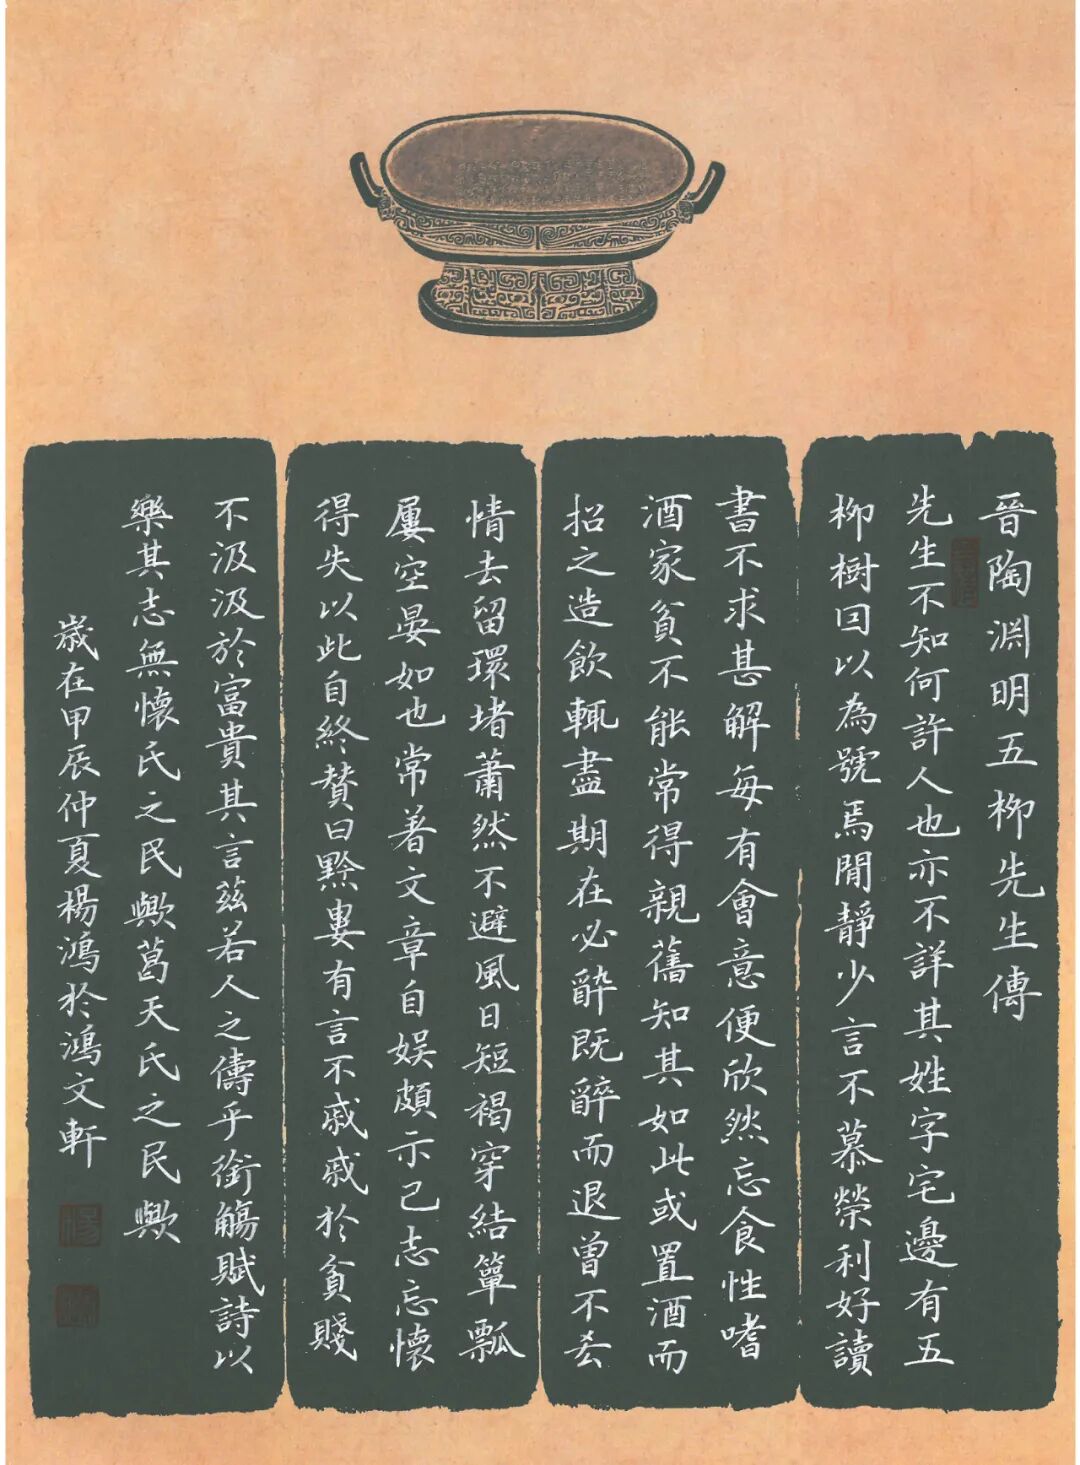 晉陶淵明五柳先生傳
先生不知何許人也亦不詳其姓字宅邊有五
柳樹囙以為號焉閒靜少言不慕榮利好讀
書不求甚解每有會意便欣然忘食性嗜
酒家貧不能常得親舊知其如此或置酒而
招之造飲輒盡期在必醉既醉而退曾不吝
情去留環堵蕭然不避風日短褐穿結簞瓢
屢空晏如也常著文章自娛頗示己志忘懷
得失以此自終贊曰黔婁有言不戚戚於貧賤
不汲汲於富貴其言茲若人之儔乎銜觴賦詩以
樂其志無懷氏之民歟葛天氏之民歟
歲在甲辰仲夏楊鴻於鴻文軒
楊